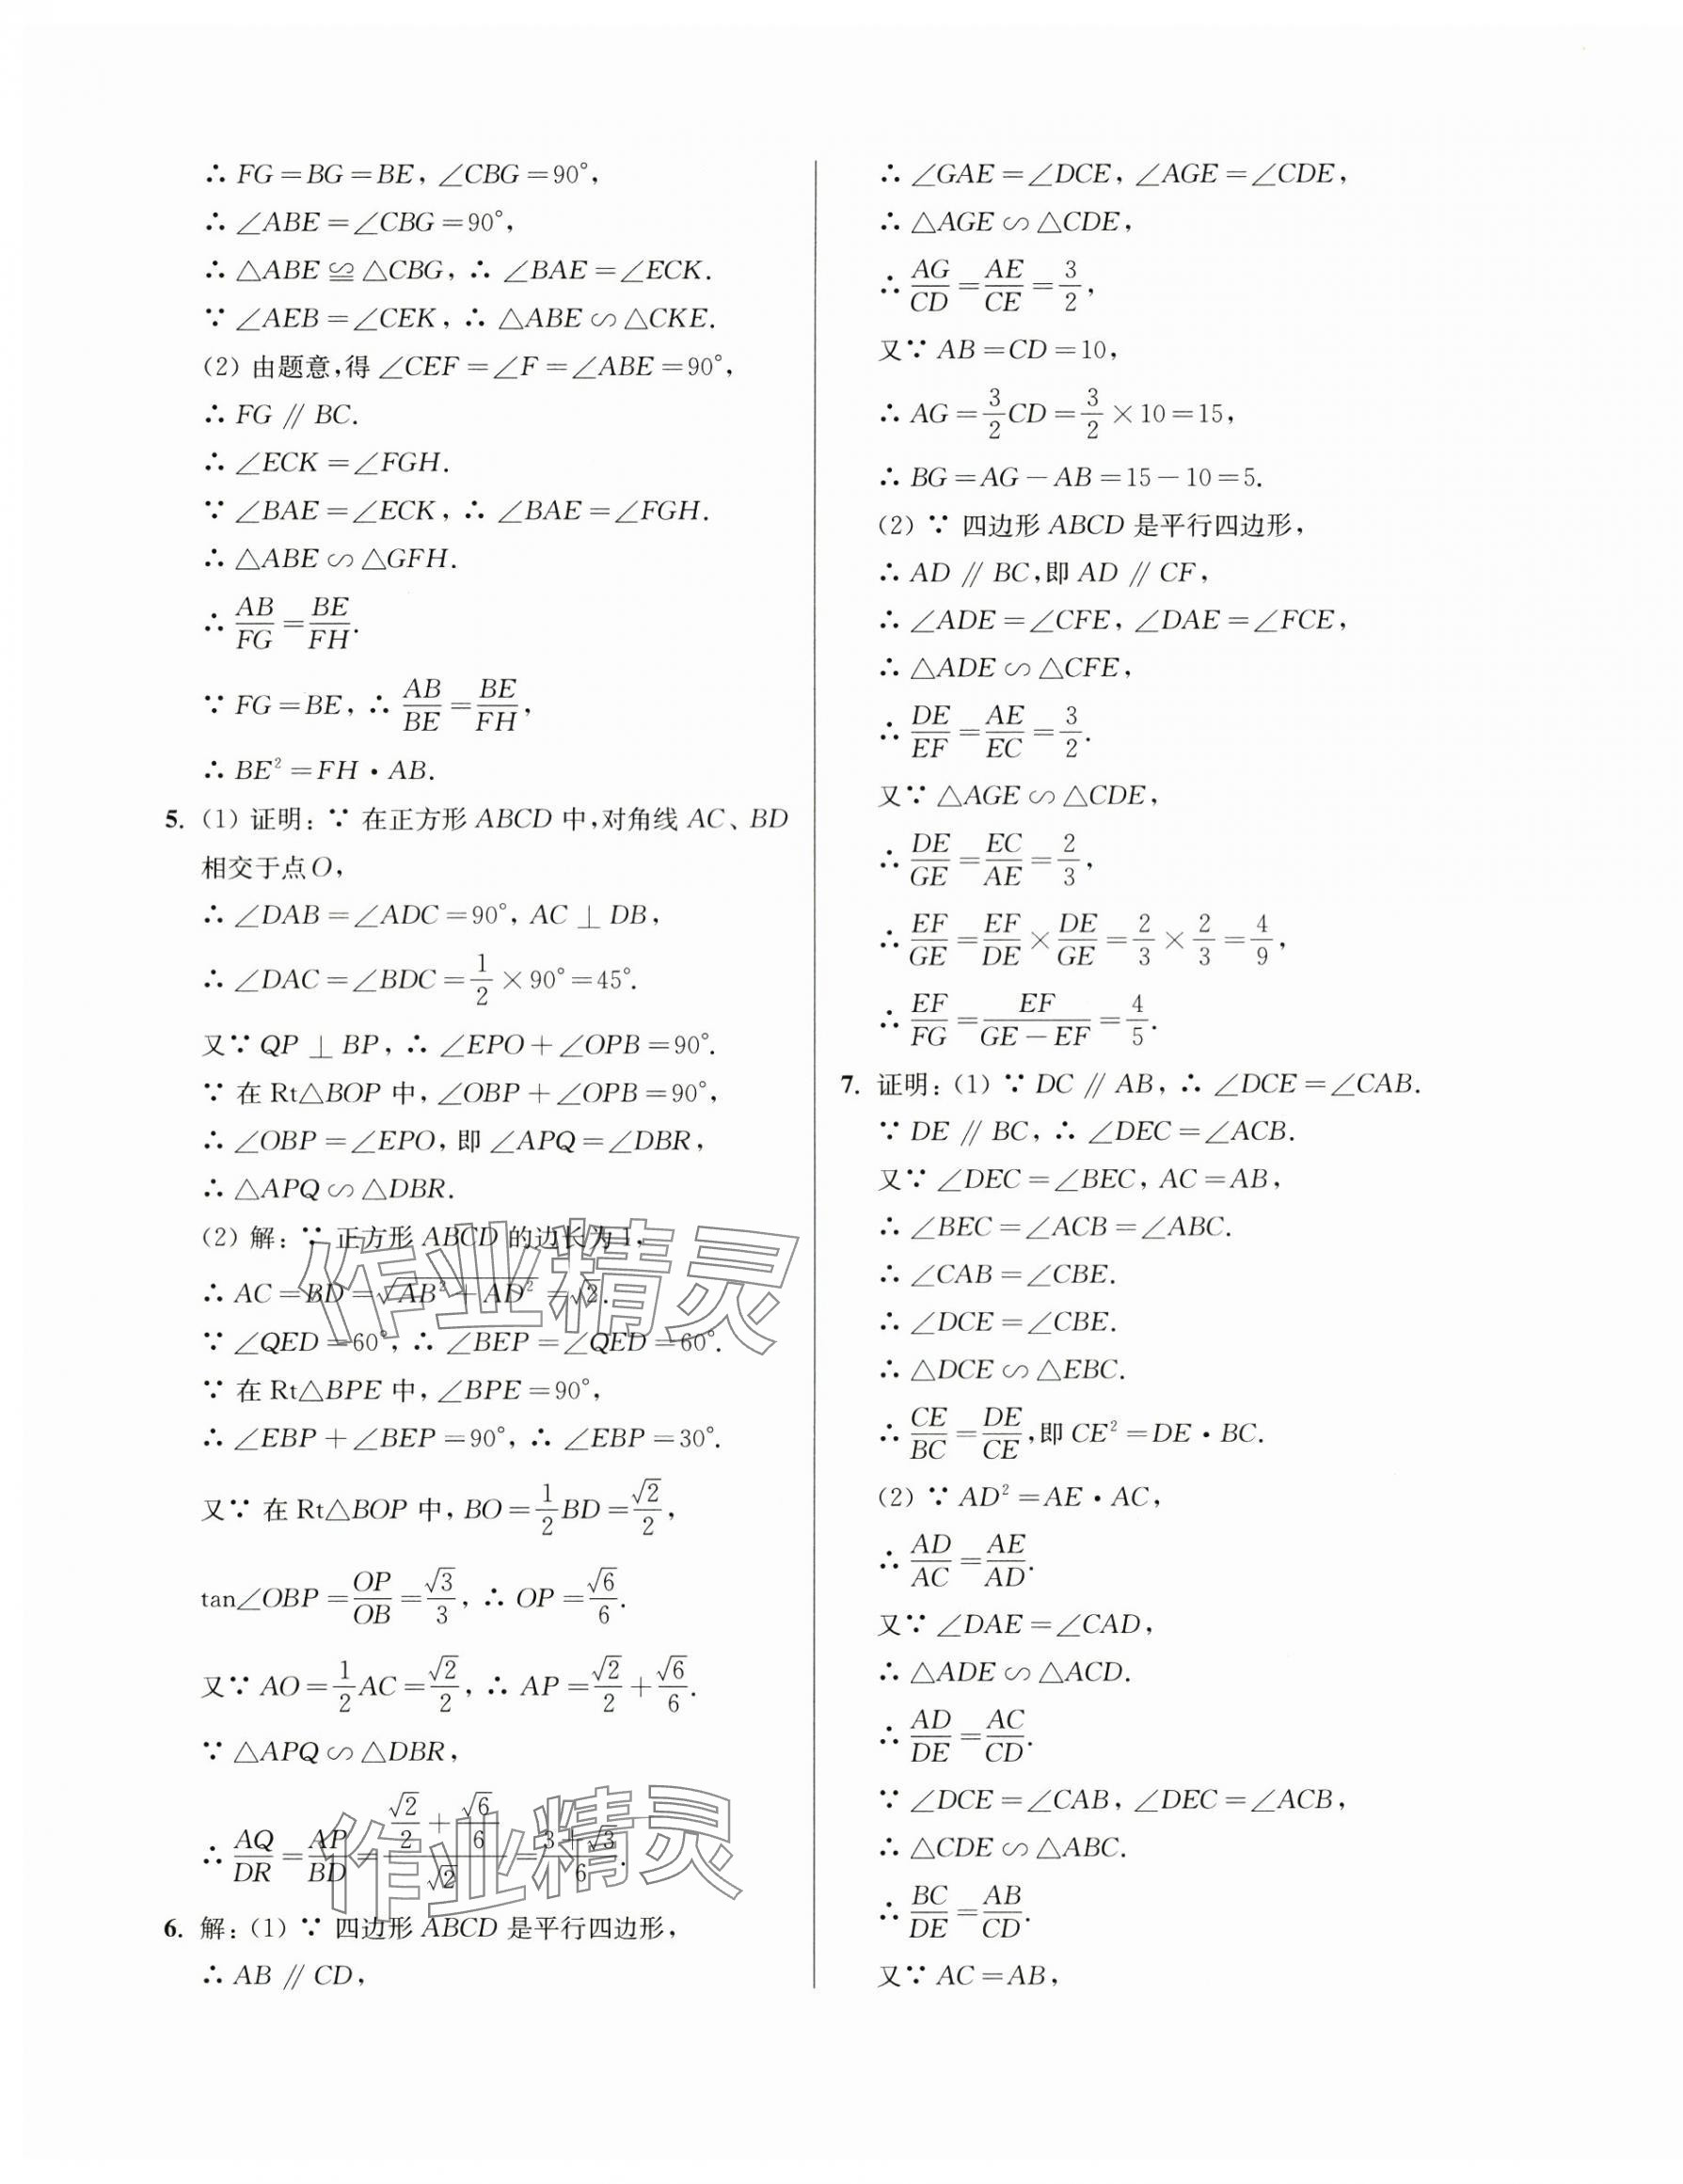 ∴ FG=BG=BE, ∠CBG=90°,
∴ ∠ABE=∠CBG=90°,
∴ △ABE≌△CBG, ∴ ∠BAE=∠ECK.
∵ ∠AEB=∠CEK, ∴ △ABE∽△CKE.
(2) 由题意,得∠CEF=∠F=∠ABE=90°,
∴ FG∥BC.
∴ ∠ECK=∠FGH.
∵ ∠BAE=∠ECK, ∴ ∠BAE=∠FGH.
∴ △ABE∽△GFH.
∴ AB/FG=BE/FH.
∵ FG=BE, ∴ AB/BE=BE/FH,
∴ BE²=FH·AB.
5. (1) 证明: ∵ 在正方形ABCD中,对角线AC、BD
相交于点O,
∴ ∠DAB=∠ADC=90°, AC⊥DB,
∴ ∠DAC=∠BDC=1/2×90°=45°.
又∵ QP⊥BP, ∴ ∠EPO+∠OPB=90°.
∵ 在Rt△BOP中, ∠OBP+∠OPB=90°,
∴ ∠OBP=∠EPO, 即∠APQ=∠DBR,
∴ △APQ∽△DBR.
(2) 解: ∵ 正方形ABCD的边长为1,
∴ AC=BD=√(AB²+AD²)=√2.
∵ ∠QED=60°, ∴ ∠BEP=∠QED=60°.
∵ 在Rt△BPE中, ∠BPE=90°,
∴ ∠EBP+∠BEP=90°, ∴ ∠EBP=30°.
又∵ 在Rt△BOP中, BO=1/2BD=√2/2,
tan∠OBP=OP/OB=√3/3, ∴ OP=√6/6.
又∵ AO=1/2AC=√2/2, ∴ AP=√2/2+√6/6.
∵ △APQ∽△DBR,
∴ AQ/DR=AP/BD=(√2/2+√6/6)/√2=(3+√3)/6.
6. 解: (1) ∵ 四边形ABCD是平行四边形,
∴ AB∥CD,
∴ ∠GAE=∠DCE, ∠AGE=∠CDE,
∴ △AGE∽△CDE,
∴ AG/CD=AE/CE=3/2,
又∵ AB=CD=10,
∴ AG=3/2CD=3/2×10=15,
∴ BG=AG-AB=15-10=5.
(2) ∵ 四边形ABCD是平行四边形,
∴ AD∥BC,即AD∥CF,
∴ ∠ADE=∠CFE, ∠DAE=∠FCE,
∴ △ADE∽△CFE,
∴ DE/EF=AE/EC=3/2.
又∵ △AGE∽△CDE,
∴ DE/GE=EC/AE=2/3,
∴ EF/GE=EF/DE×DE/GE=2/3×2/3=4/9,
∴ EF/FG=EF/(GE-EF)=4/5.
7. 证明: (1) ∵ DC∥AB, ∴ ∠DCE=∠CAB.
∵ DE∥BC, ∴ ∠DEC=∠ACB.
又∵ ∠DEC=∠BEC, AC=AB,
∴ ∠BEC=∠ACB=∠ABC.
∴ ∠CAB=∠CBE.
∴ ∠DCE=∠CBE.
∴ △DCE∽△EBC.
∴ CE/BC=DE/CE,即CE²=DE·BC.
(2) ∵ AD²=AE·AC,
∴ AD/AC=AE/AD.
又∵ ∠DAE=∠CAD,
∴ △ADE∽△ACD.
∴ AD/DE=AC/CD.
∵ ∠DCE=∠CAB, ∠DEC=∠ACB,
∴ △CDE∽△ABC.
∴ BC/DE=AB/CD.
又∵ AC=AB,
作业精灵
作业精灵